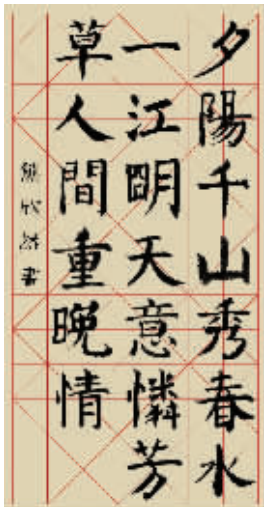 夕陽千山秀春水
一江明天意憐芳
草人間重晚情